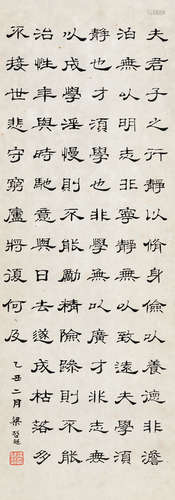 夫君子之行靜以脩身儉以養德非澹
泊無以明志非寧靜無以致遠夫學須
靜也才須學也非學無以廣才非志無
以成學淫慢則不能勵精險躁則不能
治性年與時馳意與日去遂成枯落多
不接世悲守窮廬將復何及
乙丑二月 梁啓超